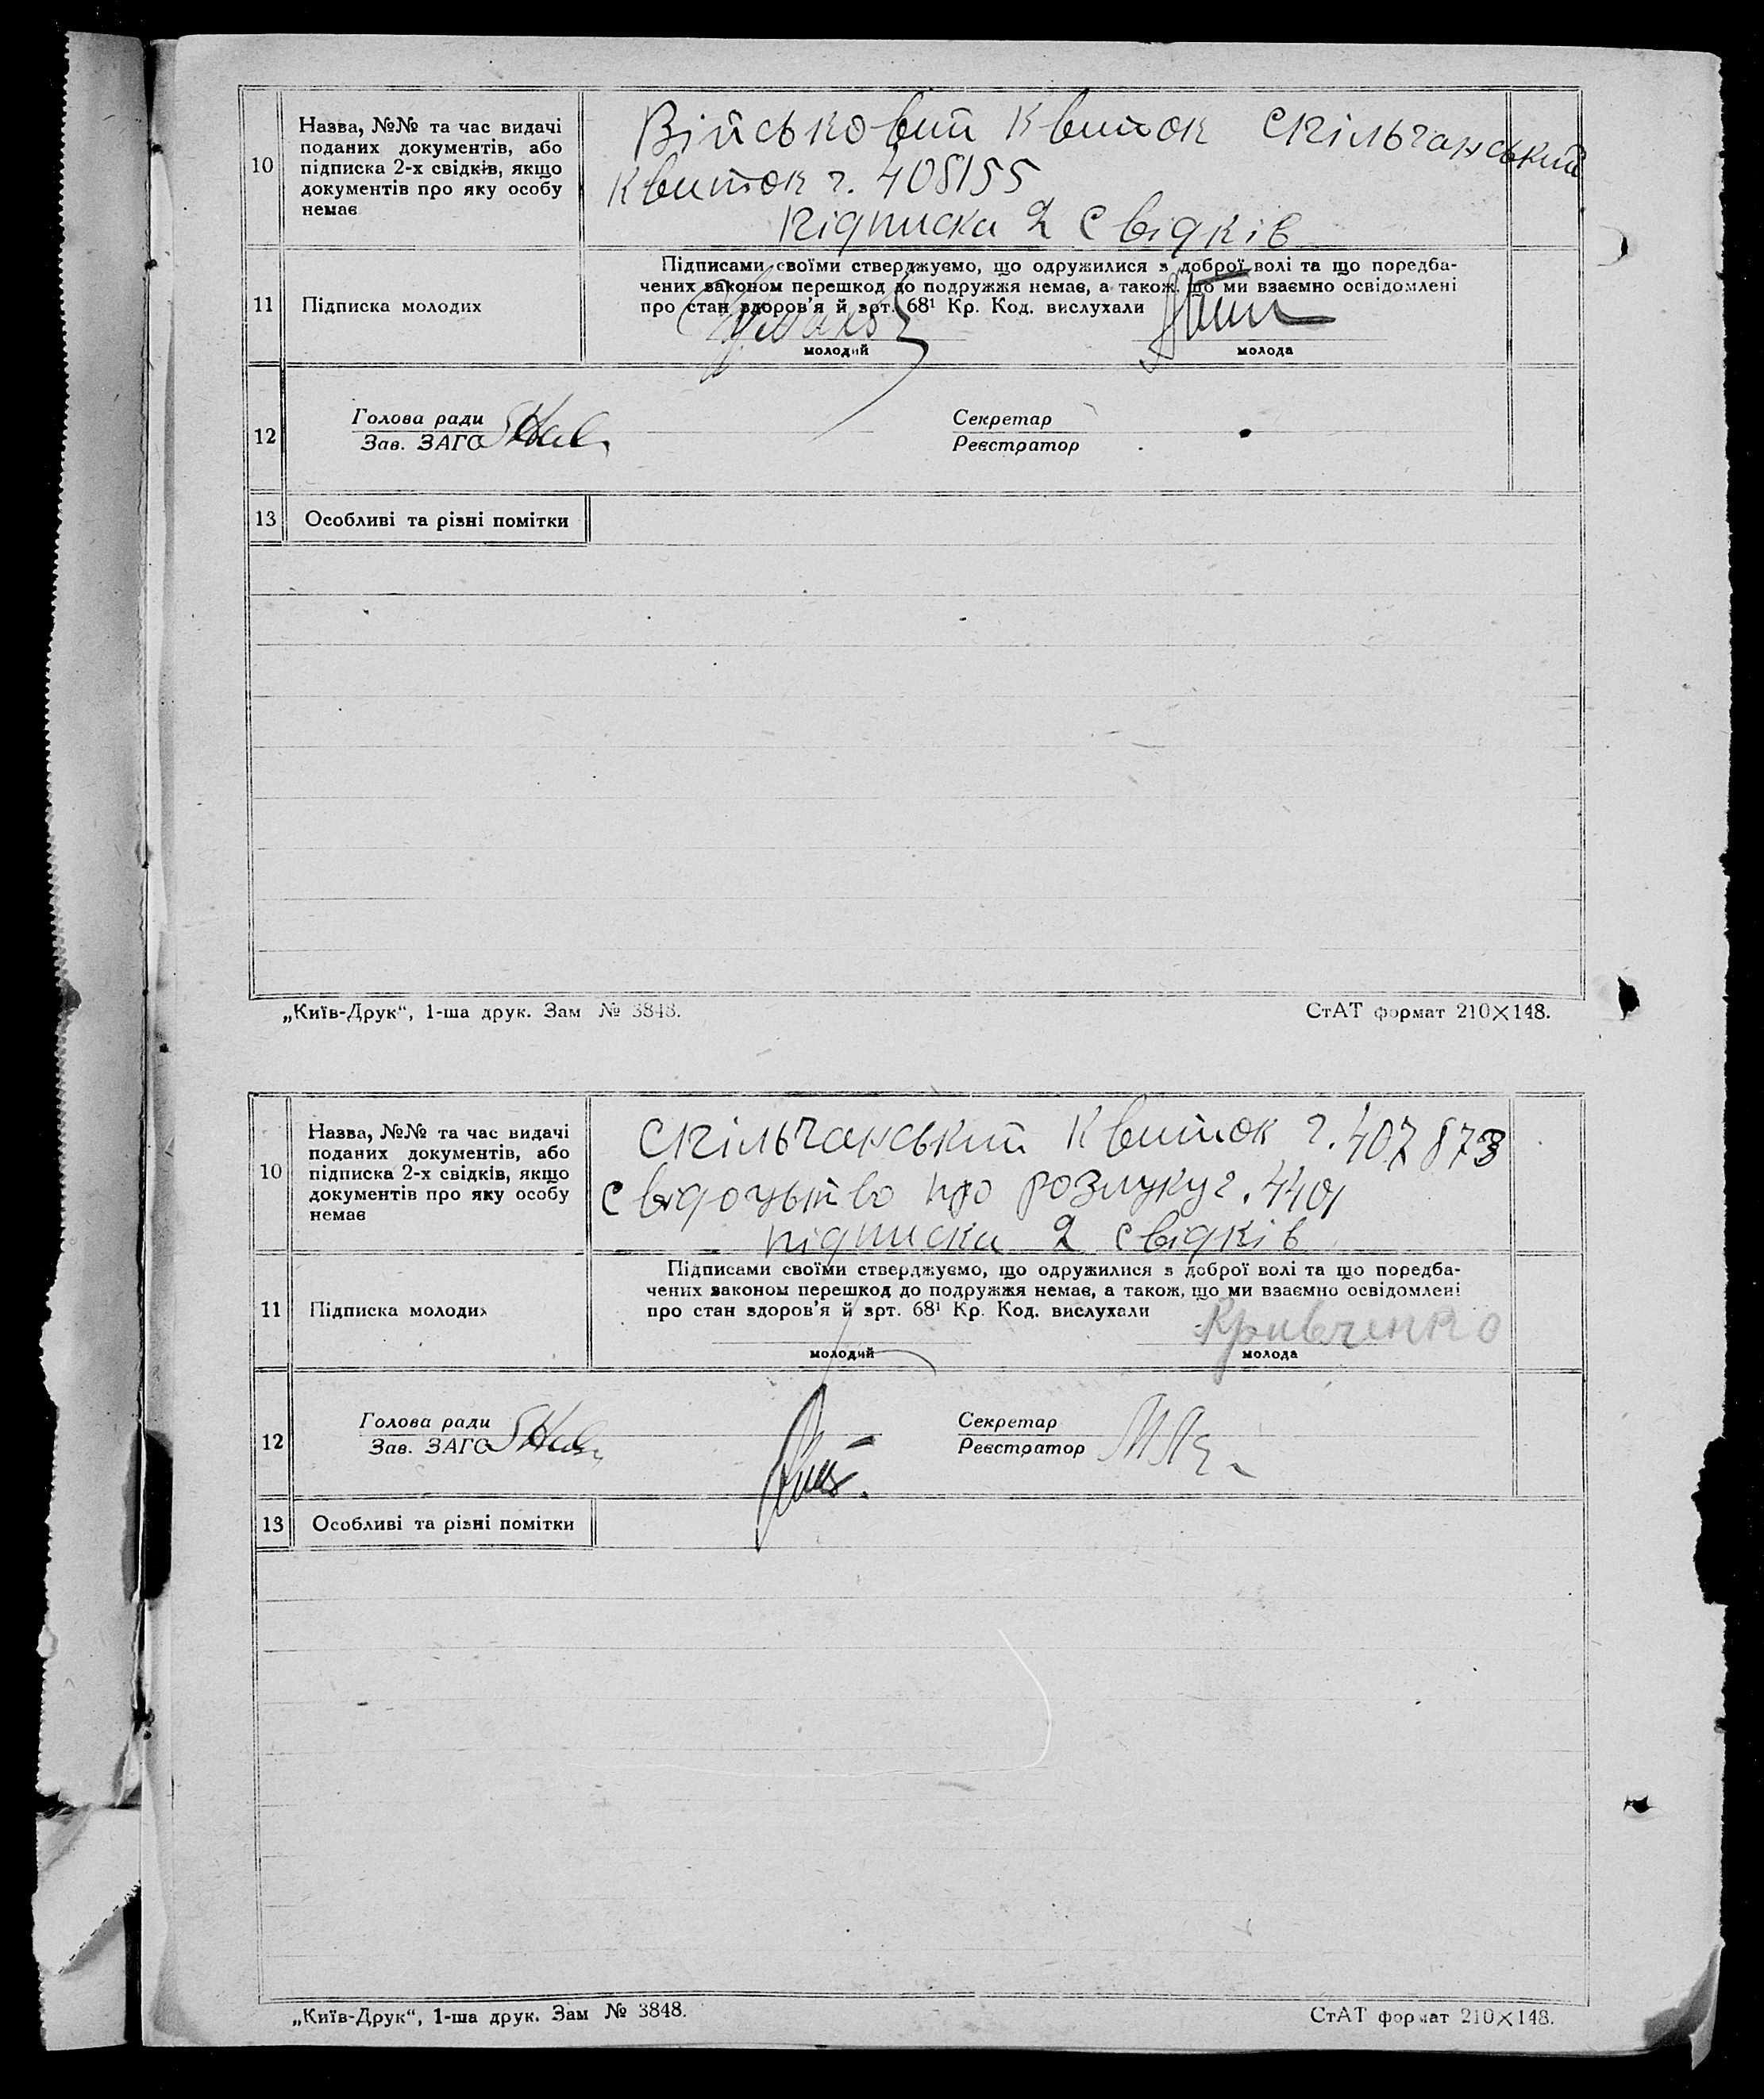 10
Назва, №№ та час видачі
поданих документів, або
підписка 2-х свідків, якщо
документів про яку особу
немає
Військовий квиток спільчанський
квиток ч. 408155
підписка 2 свідків
11
Підписка молодих
Підписами своїми стверджуємо, що одружилися з доброї волі та що поредба-
чених законом перешкод до подружжя немає, а також, що ми взаємно освідомлені
про стан здоров'я й арт. 68¹ Кр. Код. вислухали
молодий
молода
12
Голова ради
Зав. ЗАГС
Секретар
Реєстратор
13
Особливі та різні помітки
„Київ-Друк“, 1-ша друк. Зам № 3848.
СтАТ формат 210×148.
10
Назва, №№ та час видачі
поданих документів, або
підписка 2-х свідків, якщо
документів про яку особу
немає
спільчанський квиток ч. 407873
свідоцьтво про розлуку ч. 4401
підписка 2 свідків
11
Підписка молодих
Підписами своїми стверджуємо, що одружилися з доброї волі та що поредба-
чених законом перешкод до подружжя немає, а також, що ми взаємно освідомлені
про стан здоров'я й арт. 68¹ Кр. Код. вислухали
Кривченко
молодий
молода
12
Голова ради
Зав. ЗАГС
Секретар
Реєстратор
13
Особливі та різні помітки
„Київ-Друк“, 1-ша друк. Зам № 3848.
СтАТ формат 210×148.